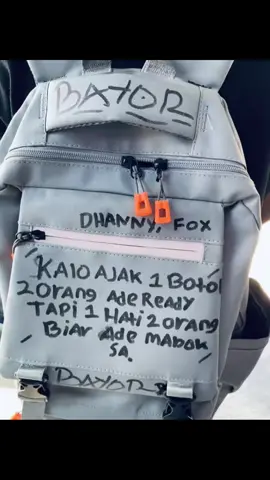 BATOR
DHANNY, FOX
KALO AJAK 1 BOTOL
2 ORANG Ade Ready
TAPI 1 HATI 2 ORANG
BIAR ADE MABOK
SA.
BATOR